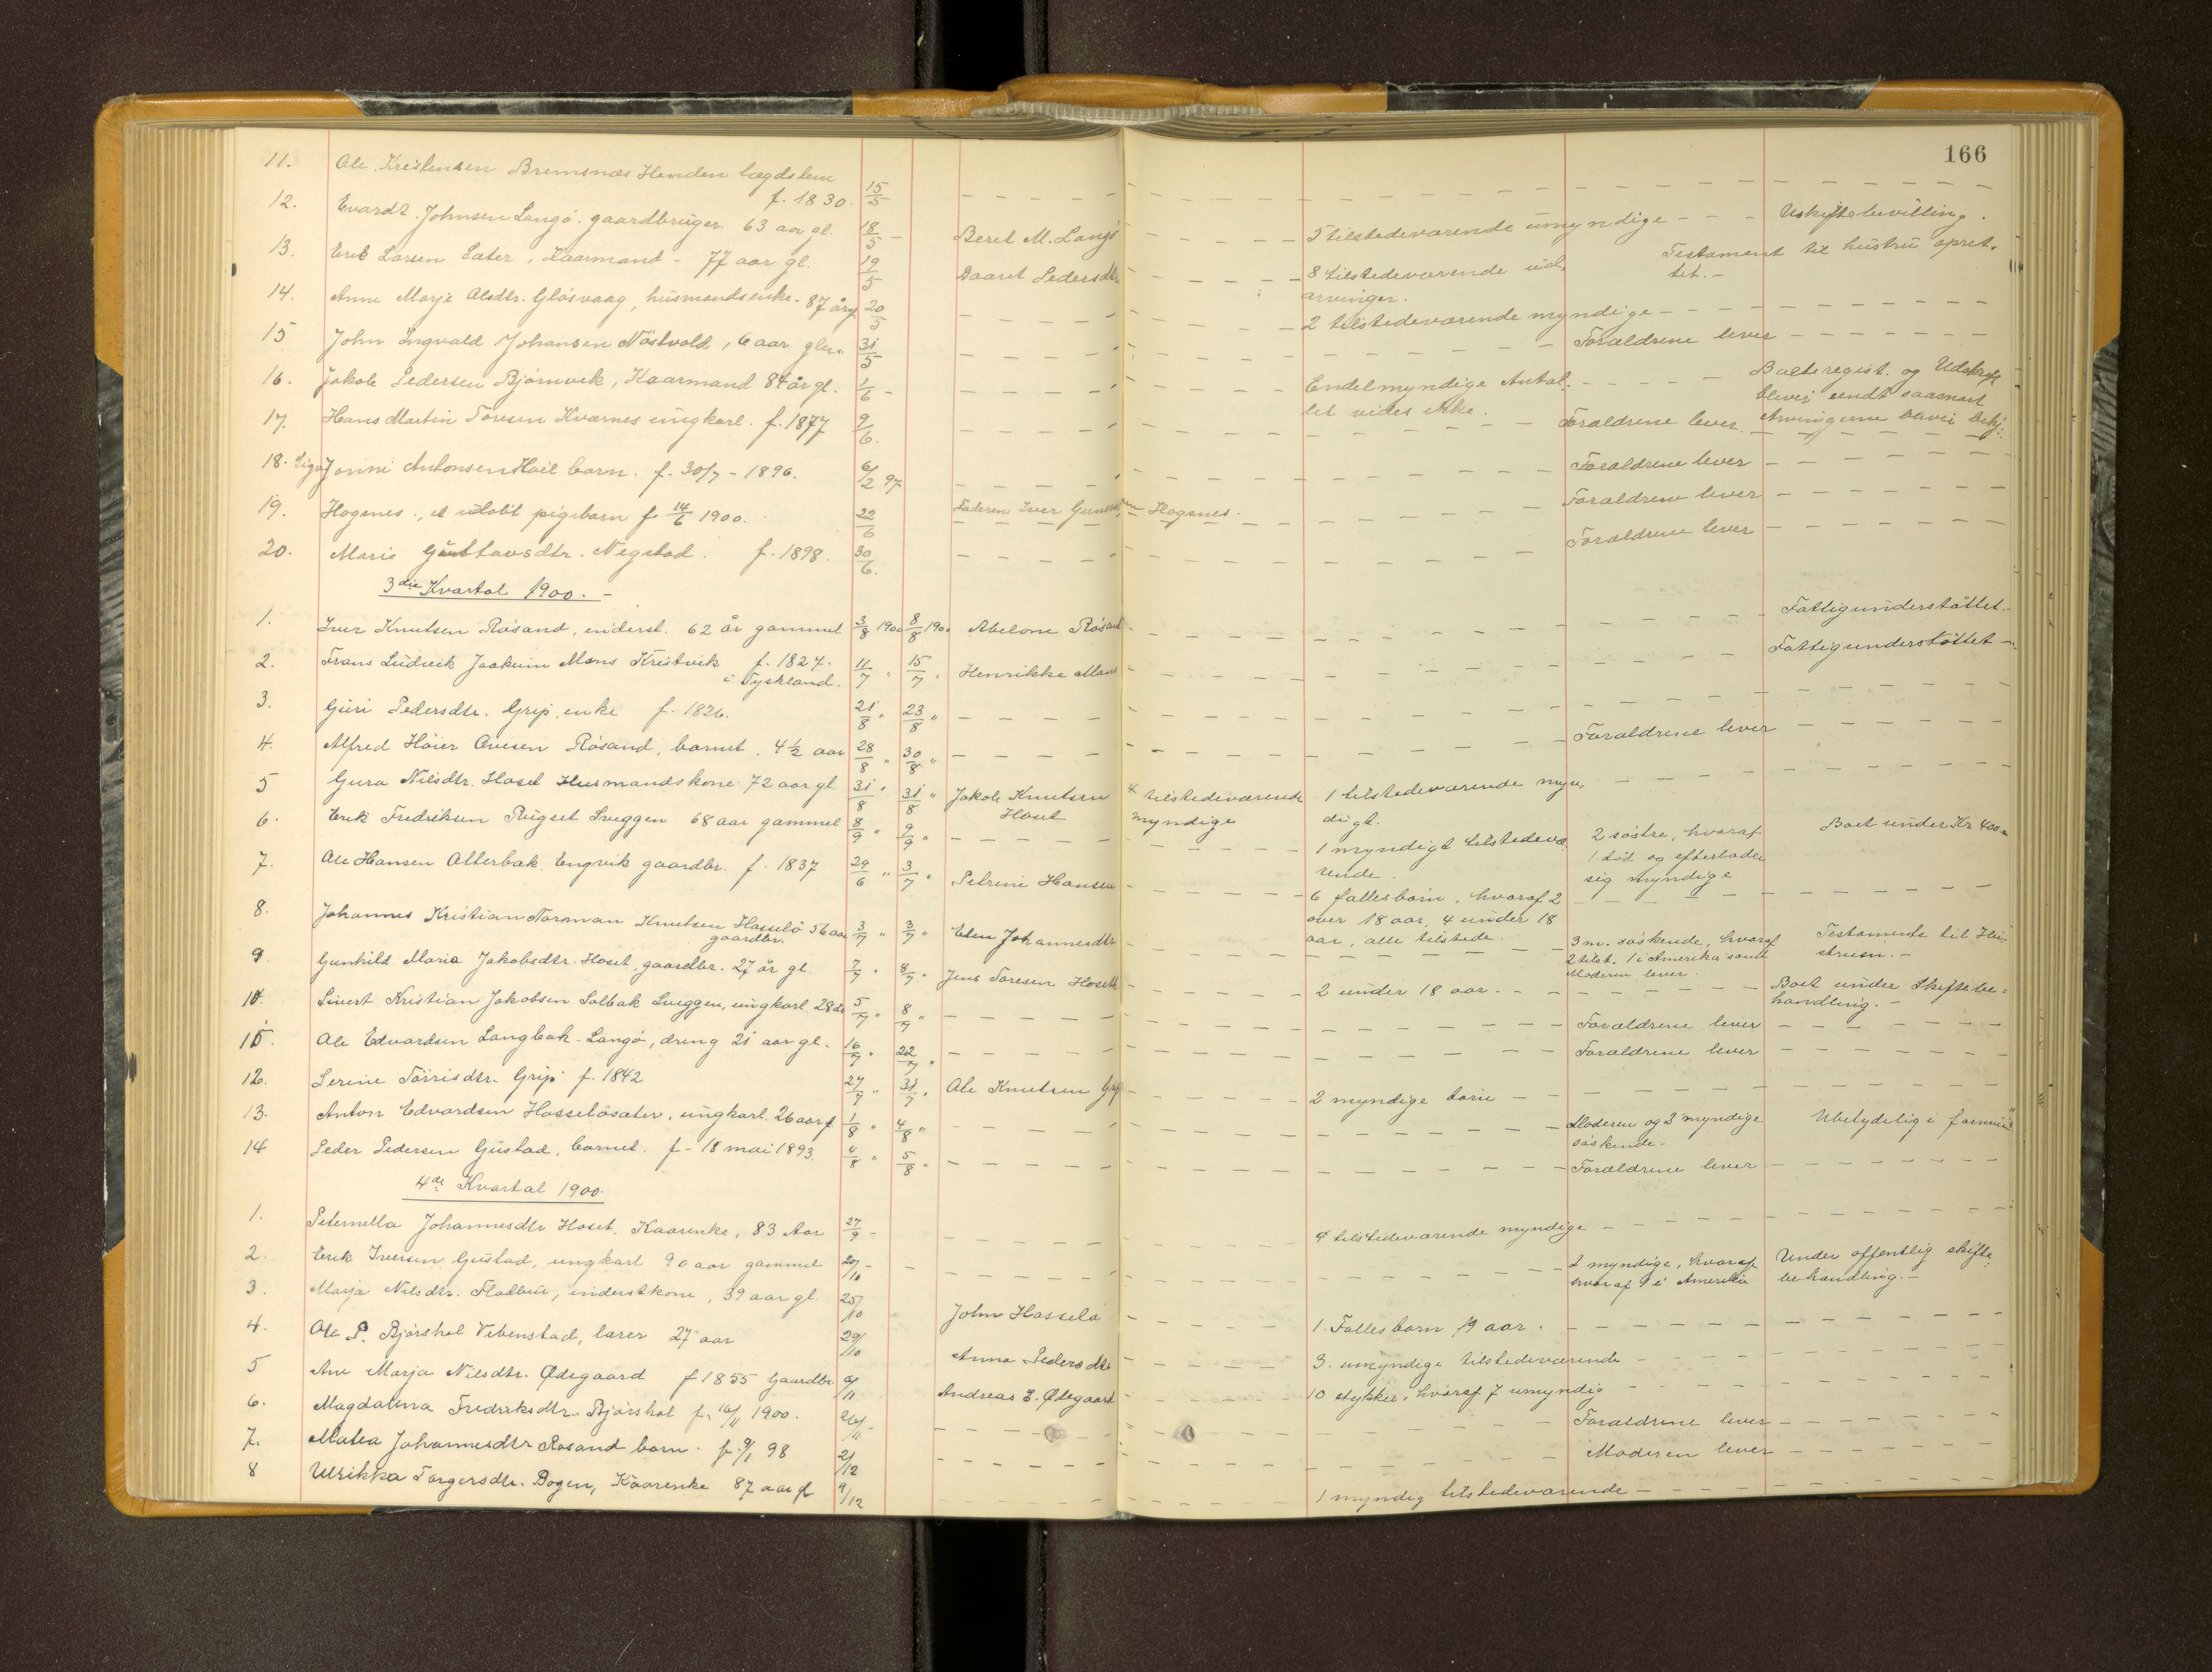 166
11. Ole Kristensen Bremsnæs Henden lægdslem
f. 1830. 15/5
12. Evardt Johnsen Langö, gaardbruger. 63 aar gl. 18/5 - Beret M. Langö 5 tilstedeværende umyndige Uskiftebevilling.
13. Erik Larsen Sater, Kaarmand - 77 aar gl. 19/5 Daaret Pedersdtr 8 tilstedeværende Testament til hustru opret-
arvinger. tet. -
14. Anne Marje Olsdtr. Glösvaag, husmandsenke - 87 år gl. 20/5 2 tilstedeværende myndige
15 John Ingvald Johansen Nöstvold, 6 aar gl. 31/5 Foraldrene lever
16. Jakob Pedersen Bjørnvik, Kaarmand 84 år gl. 1/6 - Endel myndige Antal- Boets regist. og Udskrift
let vides ikke. bliver sendt saasnart
17. Hans Martin Toresen Kvarnes ungkarl. f. 1877 9/6. Foraldrene lever. Arvingerne
18. Jonine Antonsen Hoel barn. f. 30/7 - 1896. 6/2 97 Foraldrene lever
19. Hogsnes, et udöbt pigebarn f. 14/6 1900. 22/6 Faderen Iver Hogsnes. Foraldrene lever
20. Marie Gustavsdtr. Negstad. f. 1898. 30/6. Foraldrene lever
3die Kvartal 1900. -
1. Iver Knutsen Røsand, inderst. 62 år gammel 3/8 1900 8/8 1900 Abelone Røsand Fattigunderstöttet.
2. Frans Ludvik Joakum Mons Kristvik f. 1827. 11/7 " 15/7 " Henrikke Mons Fattigunderstöttet -
i Tyskland.
3. Guri Pedersdtr. Grip, enke f. 1826. 21/8 " 23/8 "
4. Alfred Höier Ovesen Røsand, barnet. 4 1/2 aar 28/8 " 30/8 " Foraldrene lever
5 Gura Nilsdtr. Hoset Husmandskone 72 aar gl 31/8 " 31/8 " Jakob Knutsen 4 tilstedeværende 1 tilstedeværende myn-
Hoset myndige digt.
6. Erik Fredriksen Rugset Sveggen 68 aar gammel 8/9 " 9/9 " 1 myndigt tilstedevæ- 2 söstre, hvoraf Boet under Kr 400 -
rende. 1 död og efterlader
sig myndige
7. Ole Hansen Alterbak Engvik gaardbr. f. 1837 29/6 " 3/7 " Petrine Hansen 6 fallesbörn, hvoraf 2
over 18 aar, 4 under 18
aar, alle tilstede.
8. Johannes Kristian Norman Knutsen Hasselö 56 aar 3/7 " 3/7 " Elen Johannesdtr 3 m. söskende, hvoraf Testamente til Hu-
gaardbr. 2 tilst. 1 i Amerika samt struen. -
Moderen lever.
9 Gunhild Maria Jakobsdtr. Hoset, gaardbr. 27 år gl. 7/7 " 8/7 " Jens Toresen Hoset 2 under 18 aar. Boet under Skiftebe-
handling. -
10. Sivert Kristian Jakobsen Solbak Sveggen, ungkarl 28 aar 5/7 " 8/7 " Foraldrene lever
11. Ole Edvardsen Langbak - Langö, dreng 21 aar gl. 16/7 " 22/7 " Foraldrene lever
12. Serine Törrisdtr. Grip f. 1842 27/7 " 31/7 " Ole Knutsen Grip 2 myndige börn
13. Anton Edvardsen Hasselösater, ungkarl. 26 aar gl 1/8 " 4/8 " Moderen og 3 myndige Ubetydelig i formue
söskende -
14 Peder Pedersen Gustad, barnet. f - 18 mai 1893 4/8 " 5/8 " Foraldrene lever
4de Kvartal 1900.
1. Peternella Johannesdtr Hoset, Kaarenke, 83 Aar 27/9 - 4 tilstedeværende myndige
2. Erik Iversen Gustad, ungkarl 90 aar gammel 20/10 - 2 myndige, hvoraf Under offentlig skifte-
hvoraf 1 i Amerika behandling. -
3. Marja Nilsdtr. Flatbu, inderstkone, 39 aar gl. 25/10 John Hasselö 1. Fallesbarn 19 aar.
4. Ole P. Bjørshol Vebenstad, lærer 27 aar 29/10 Anna Pedersdtr 3. umyndige tilstedeværende
5 Ane Marja Nilsdtr. Ødegaard f 1855 Gaardbr. 9/11 Andreas E. Ødegaard 10 stykker, hvoraf 7 umyndig
6. Magdalena Fredriksdtr. Bjørshol f. 16/11 1900. 26/11 - Foraldrene lever
7. Matea Johannesdtr Røsand barn. f. 9/1 98 2/12 Moderen lever
8 Ulrikka Torgersdtr. Bogen, Kaarenke 87 aar gl 9/12 1 myndig tilstedeværende